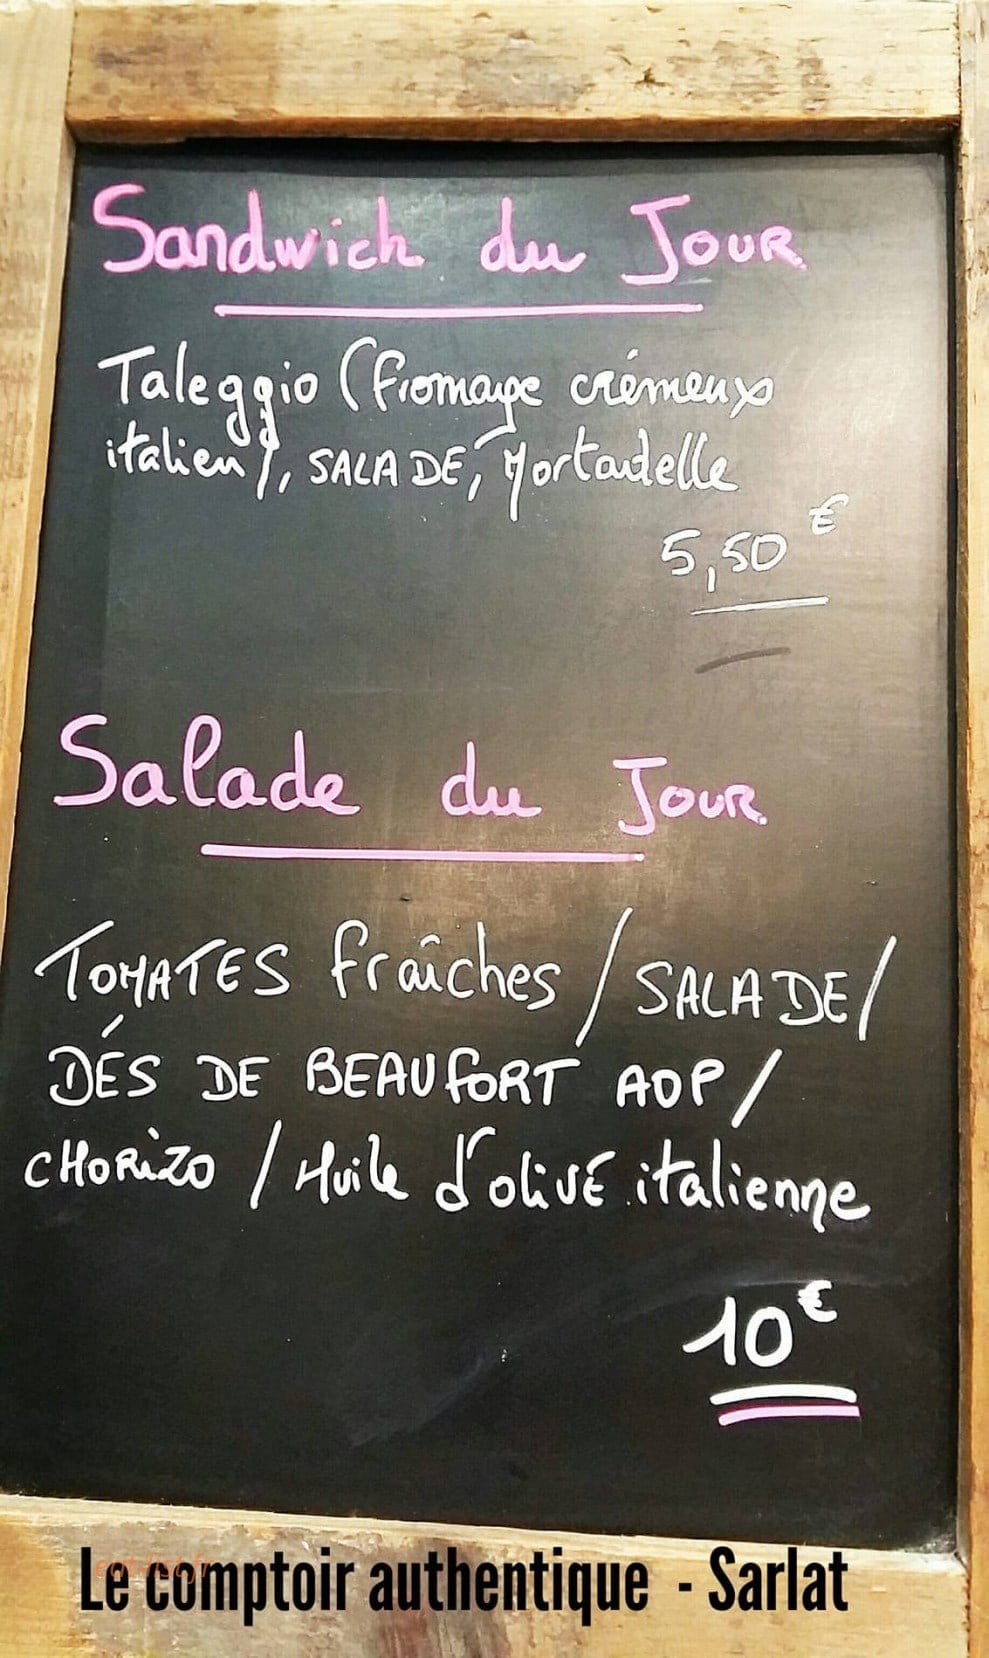 Sandwich du JOUR
Taleggio (fromage crémeux
italien), SALADE, Mortadelle
5,50 €
Salade du JOUR
TOMATES fraîches / SALADE /
DÉS DE BEAUFORT AOP /
CHORIZO / Huile d'olive italienne
10 €
Le comptoir authentique - Sarlat